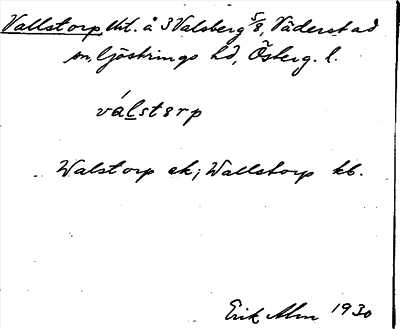 Vallstorp, tht. å S Valsberg 5/8, Väderstad
sn, Göstrings hd, Österg. l.
válsterp
Walstorp ek; Wallstorp kb.
Erik Alm 1930